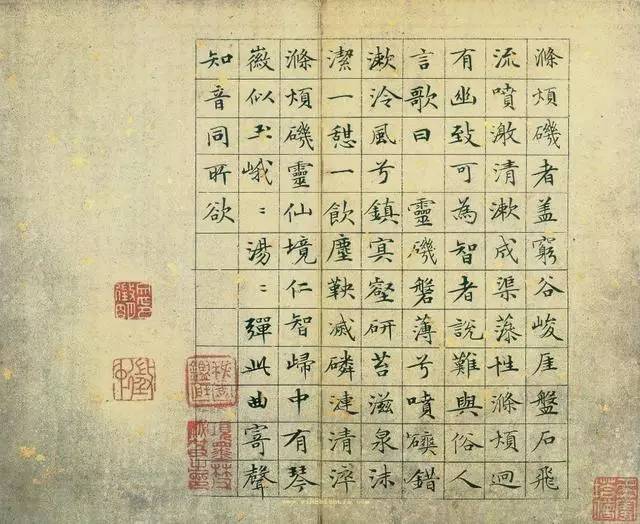 滌煩磯者盖窮谷峻厓盤石飛
流噴激清漱成渠藻性滌煩迥
有幽致可為智者說難與俗人
言歌曰 靈磯磐薄兮噴錯
漱泠風兮鎮冥壑研苔滋泉沫
潔一憇一飲塵鞅滅磷漣清淬
滌煩磯靈仙境仁智歸中有琴
徽似玉峨〻湯〻彈此曲寄聲
知音同所欲